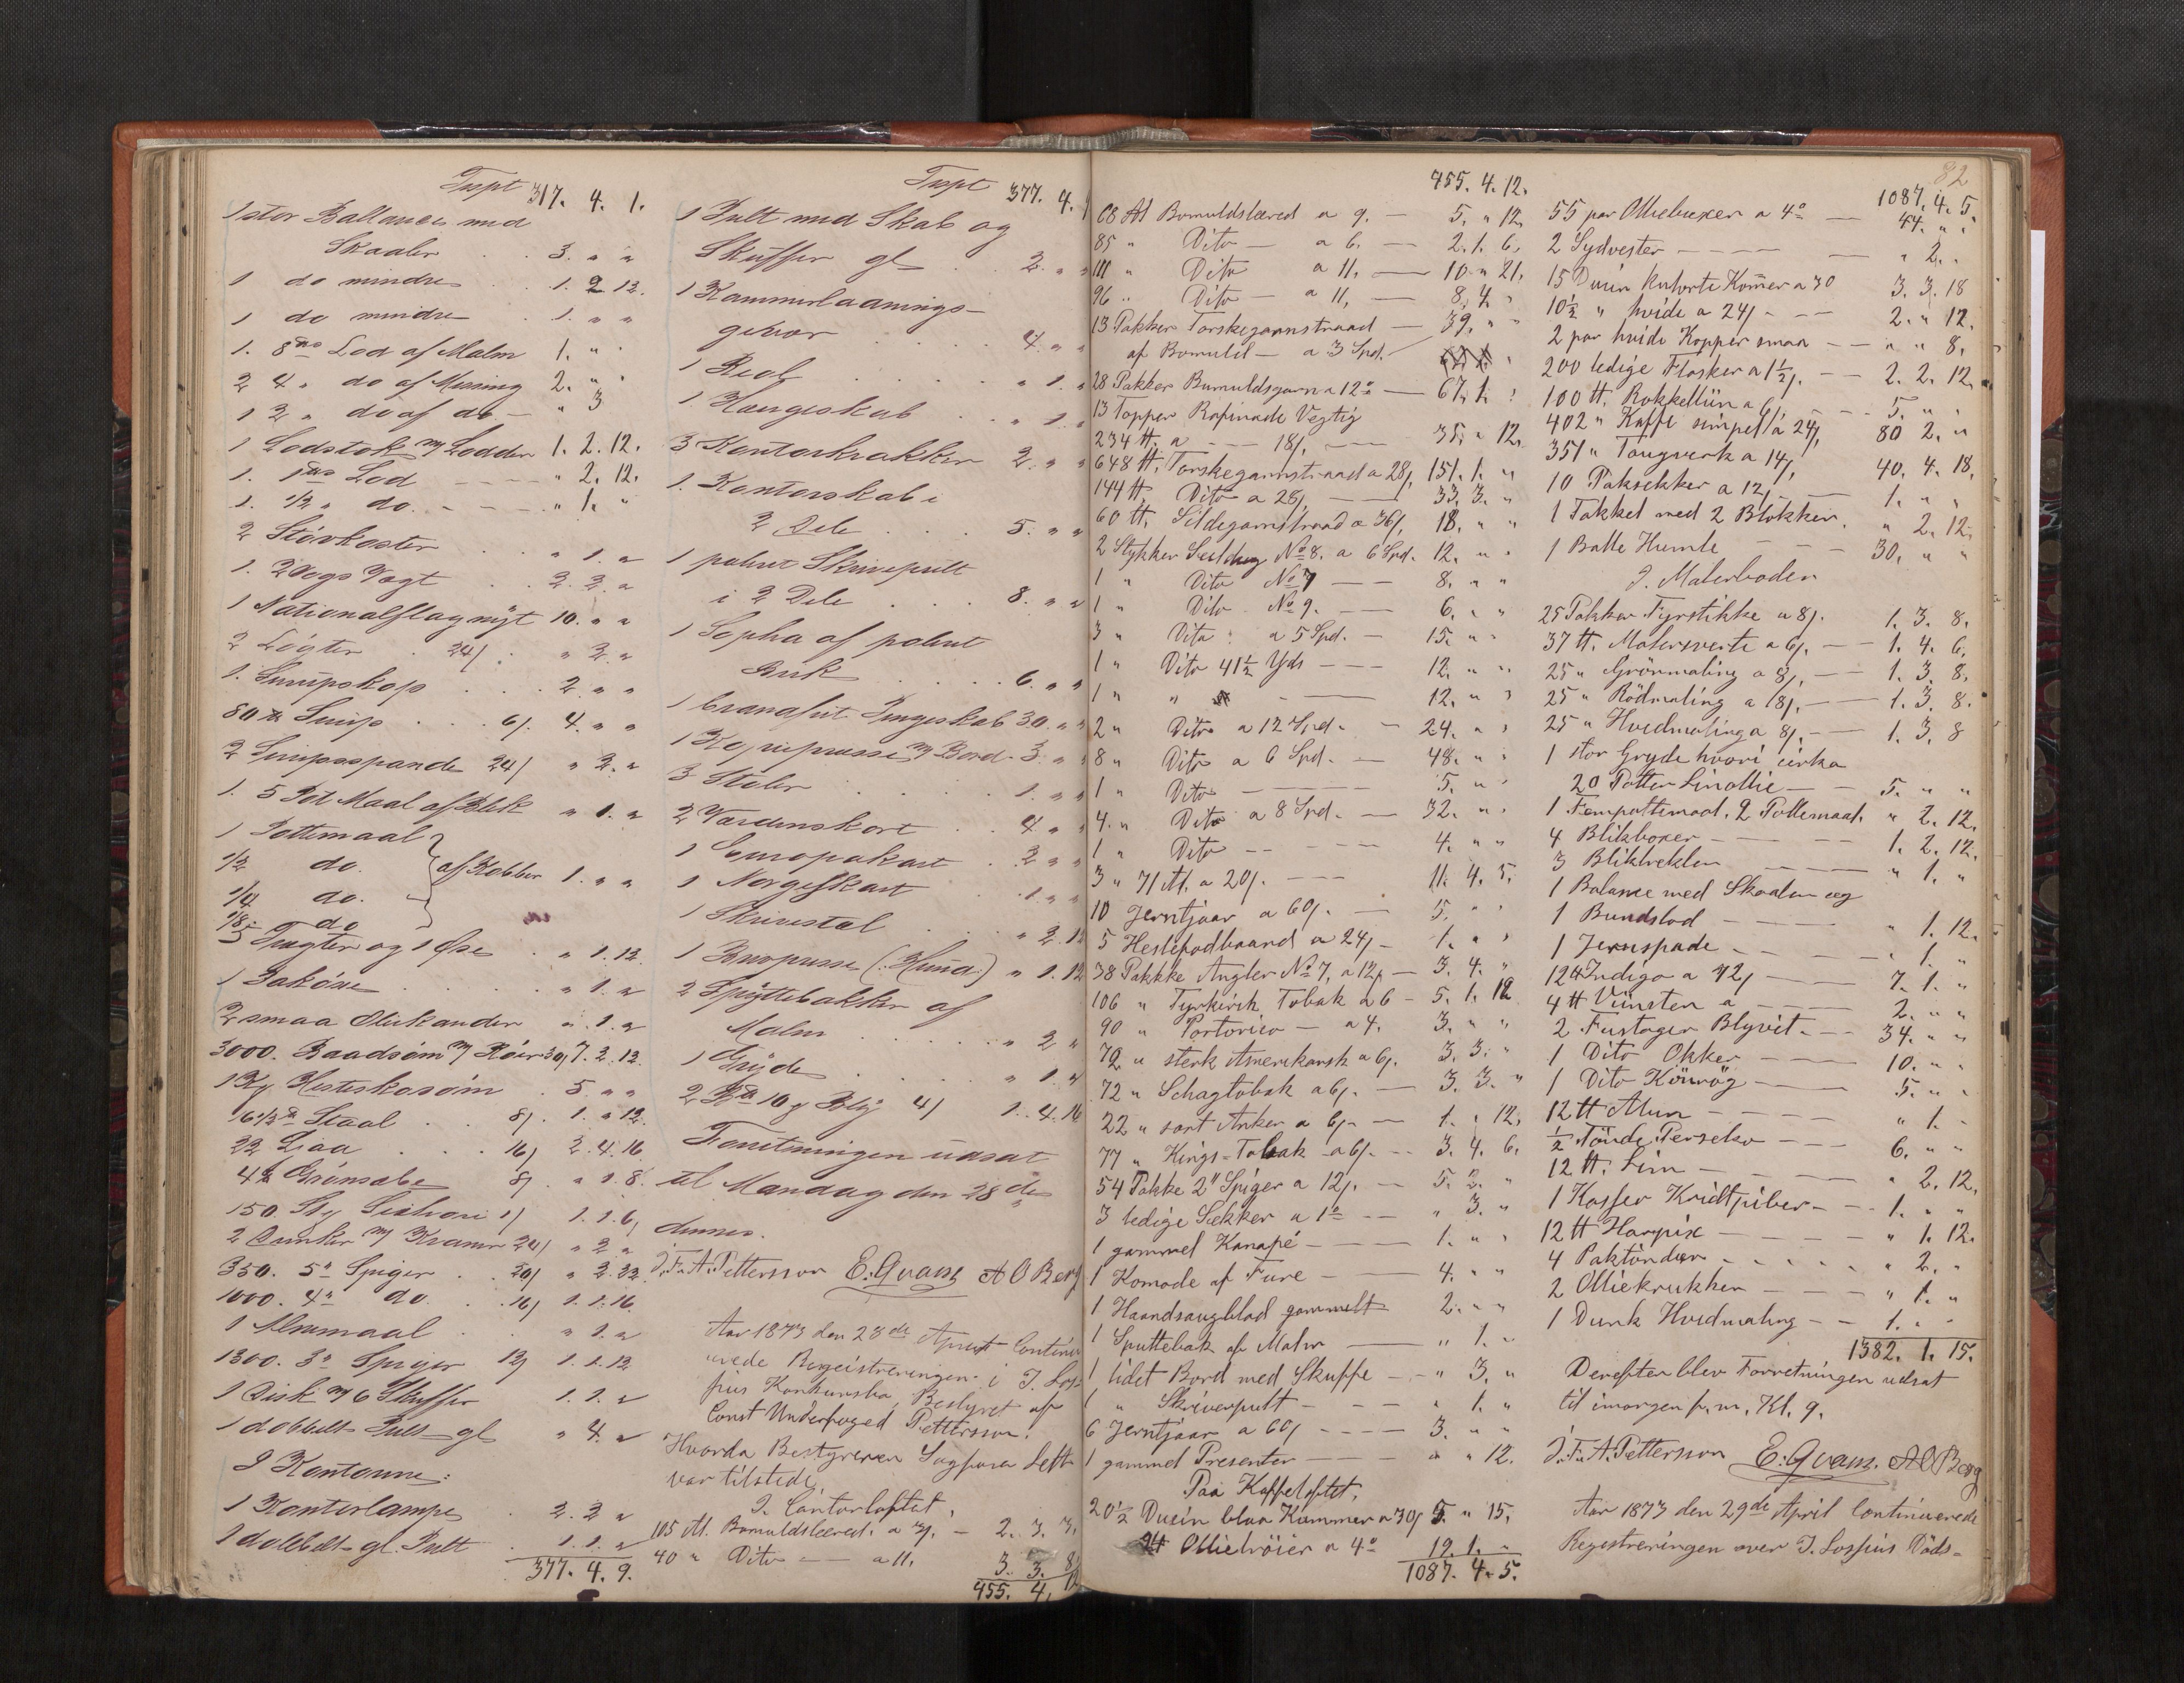 Tspt 317. 4. 1.
1 stor Ballance med
Skaaler . . 3. " "
1 do mindre . . 1. 2 12.
1 do mindre . 1. " "
1. 8 Lod af Malm 1. " "
2 4 " do af Messing 2. " "
1 2 " do af do - " 3
1 Lodstok m/ Lodder 1. 2. 12.
1. Lod - - - - " 2. 12.
1. 1/2 " do. - - - - " 1. "
2 Støvkoster . . " 1. "
1. 2 Vogs Vægt . . 2. 2. "
1 Nationalflag nyt 10. " "
2 Løgter . 24/ . " 2. "
1. . . . 2. " "
80 . . . 6/. 4. " "
2 24/ " 2. "
1. 5 Pot Maal af Blik " 1. "
1 Pottemaal
1/2 do.
1/4 do. af Kobber 1. " "
1/8 do
5 Tragter og 1 Øse . " 1. 12.
1 . . . . " 1. "
2 smaa Oliekander " 1. "
3000. Baadsøm m/ 30/ 7. 2. 12.
1 Hesteskosøm . 5. " "
16 1/2 Staal . . 8/. 1. " 12.
22 Ljaa . . . 16/ 2. 4. 16.
4 Grønsæbe 8/. " 1. 8.
150. 1/ 1. 1. 6.
2 Dunker m/ 24/ " 2 "
350. 5" Spiger . . 20/ " 2. 22.
1000. 4" do. . . 16/ 1. 1. 16.
1 . . " 1. "
1300. 3" Spiger 12/ 1. 1. 12
1 Disk m/ 6 Skuffer 1. 1. "
1 dobbelt Pult gl " 4. "
I Kontorene:
1 Kontorlampe . 2. 2 "
1 dobbelt gl. Pult . 1. 1. "
377. 4. 9.
Tspt 377. 4. 9
1 Pult med Skab og
Skuffer gl . . 2. " "
1 Kammerladnings-
gevær . . . . 4. " "
1 Reol . . . . . " 1. "
1. Hængeskab . . " 1. "
3 Kontorkrakker 2. " "
1. Kontorskab i
2 Dele . . . 5. " "
1 polert Skrivepult
i 2 Dele . . . 8. " "
1 Sopha af polert
Birk . . . . . 6. " "
1 brandfrit Pengeskab 30. " "
1 Kopiepresse m/ Bord. 3. " "
3 Stoler . . . . . 1. " "
2 Verdenskort . . 4. " "
1 Europakart . 2 " "
1 Norgeskart . . 1. " "
1 Skrivestol . . . " 2. 12
1 " 1. 12
2 Spyttebakker af
Malm . . . . . " 2 "
1 Gryde . . . . . " 1. "
2 10 Bly 4/ 1. 4. 16
Forretningen udsat
til Mandag den 28 de
dennes.
J. F. A. Petterson E. Qvam A O Berg
Aar 1873 den 28de April Continu-
erede Registreringen i J. Los-
sius Konkursbo, Bestyret af
Const Underfoged Petterson.
Hvorda Bestyreren Sagfører Sett
var tilstede.
I. Contorloftet.
105 Al. Bomuldslærred. a 3/. - 2. 3. 3.
40 " Dito - - a 11. 3. 3. 8.
455. 4. 12
82
455. 4. 12.
68 Al Bomuldslærred a 9. - 5. " 12.
85 " Dito - a 6. - 2. 1. 6.
111 " Dito a 11. - 10. " 21.
96 " Dito - a 11. - 8. 4. "
13 Pakker Torskegarnstraad - 39. " "
af Bomuld - a 3 Spd.
28 Pakker Bumuldsgarn a 12 - 67. 1. "
13 Topper Rafinade Vegtig
234 tt. a - - - 18/. - 35. " 12.
648 tt. Torskegarnstraad a 28/. 151. 1. "
144 tt. Dito a 28/. - 33. 3. "
60 tt. Sildegarnstraad a 36/. 18. " "
2 Stykker Seildug No 8. a 6 Spd. 12. " "
1 " Dito No 7 - - 8. " "
1 " Dito No 9. - 6. " "
3 " Dito a 5 Spd. - 15. " "
1 " Dito 41 1/2 Yds - - - 12. " "
1 " " - - 12. " "
2 " Dito a 12 Spd. - 24. " "
8 " Dito a 6 Spd. - 48. " "
1 " Dito - - - 5. " "
4. " Dito a 8 Spd. - 32. " "
1 " Dito - - - - - 4. " "
3 " 71 Al. a 20/. - - - 11. 4. 5.
10 Jerntjaar a 60/. - 5. " "
5 Hestefodbaand a 24/ - 1. " "
38 Pakkke Angler No 7, a 12/. - 3. 4. "
106 " Tyrkirik Tobak a 6 - 5. 1. 12
90 " Portorico - a 4. 3. " "
72 " sterk Amerikansk a 6/. 3. 3. "
72 " Schagtobak a 6/. - 3. 3. "
22 " sort Anker a 6/. - 1. " 12.
77 " Kings-Tobak a 6/. - 3. 4. 6.
54 Pakke 2" Spiger a 12/. - 5. 2. "
3 ledige Sækker a 1 - - " 3. "
1 gammel Kanapé - - - 1. " "
1 Komode af Fure - - 4. " "
1 Haandsaugblad gammelt 2. " "
1 Sputtebak af Malm - " 1. "
1 lidet Bord med Skuffe - - " 3. "
1 " Skriverpult - - - " 1. "
6 Jerntjaar a 60/ - - - - 3. " "
1 gammel Presenter - - - " " 12.
Paa Kaffeloftet.
20 1/2 Dusin blaa Kummer a 30/ 5. " 15.
24 Ollietröier a 4 19. 1. "
1087. 4. 5.
1087. 4. 5.
55 par Olliebuxer a 4 - 44. " "
2 Sydvester - - - - - " 2. "
15 Dusin kulorte Kommer a 30 3. 3. 18
10 1/2 " hvide a 24/ - - - 2. " 12.
2 par hvide Kopper smaa - - " " 8.
200 ledige Flasker a 1 1/2/. - - 2. 2. 12.
100 tt. Rokkelliin a 6/. - - - 5. " "
402 " Kaffe simpel a 24/. 80 2. "
351 " Taugverk a 14/. 40. 4. 18.
10 Paksekker a 12/. - - 1. " "
1 Takkel med 2 Blokker. " 2. 12.
1 Balle Humle - - - 30. " "
I. Malerboden
25 Pakker Fyrstikke a 8/. 1. 3. 8.
37 tt. Malersverte a 6/. - 1. 4. 6.
25 " Grönmaling a 8/. - 1. 3. 8.
25 " Rödmaling a 18/. - 1. 3. 8.
25 " Hvidmaling a 8/. - 1. 3. 8
1 stor Gryde hvori cirka
20 Potter Linollie - - 5. " "
1 Fempottemaal. 2 Pottemaal. " 2. 12.
4 Blikboxer - - - - 1. 2. 12.
3 Bliktrekter - - - " 1. "
1 Balance med Skaaler og
1 Bundslod - - - - " 1. 12.
1 Jernspade - - - - " 1. "
12 tt Indigo a 72/ - - 7. 1. "
4 tt Viinsten a - - - 2. " "
2 Fustager Blyvit - - - 34. " "
1 Dito Okker - - - 10. " "
1 Dito Könrög - - - 5. " "
12 tt Alun - - - - " 1. "
1/2 Tönde Perseko - - - 6. " "
12 tt. Lim - - - - " 2. 12.
1 Kasser Kridtpiber - - 1. " "
12 tt Harpix - - - - " 1. 12.
4 Paktönder . . . . " 2. "
2 Olliekrukker - - - " 1. "
1 Dunk Hvidmaling - - 1. " "
1382. 1. 15.
Derefter blev Forretningen udsat
til imorgen f. m. Kl. 9.
J. F. A. Petterson E. Qvam. A O Berg
Aar 1873 den 29de April Continuerede
Registreringen over J. Lossius Döds-